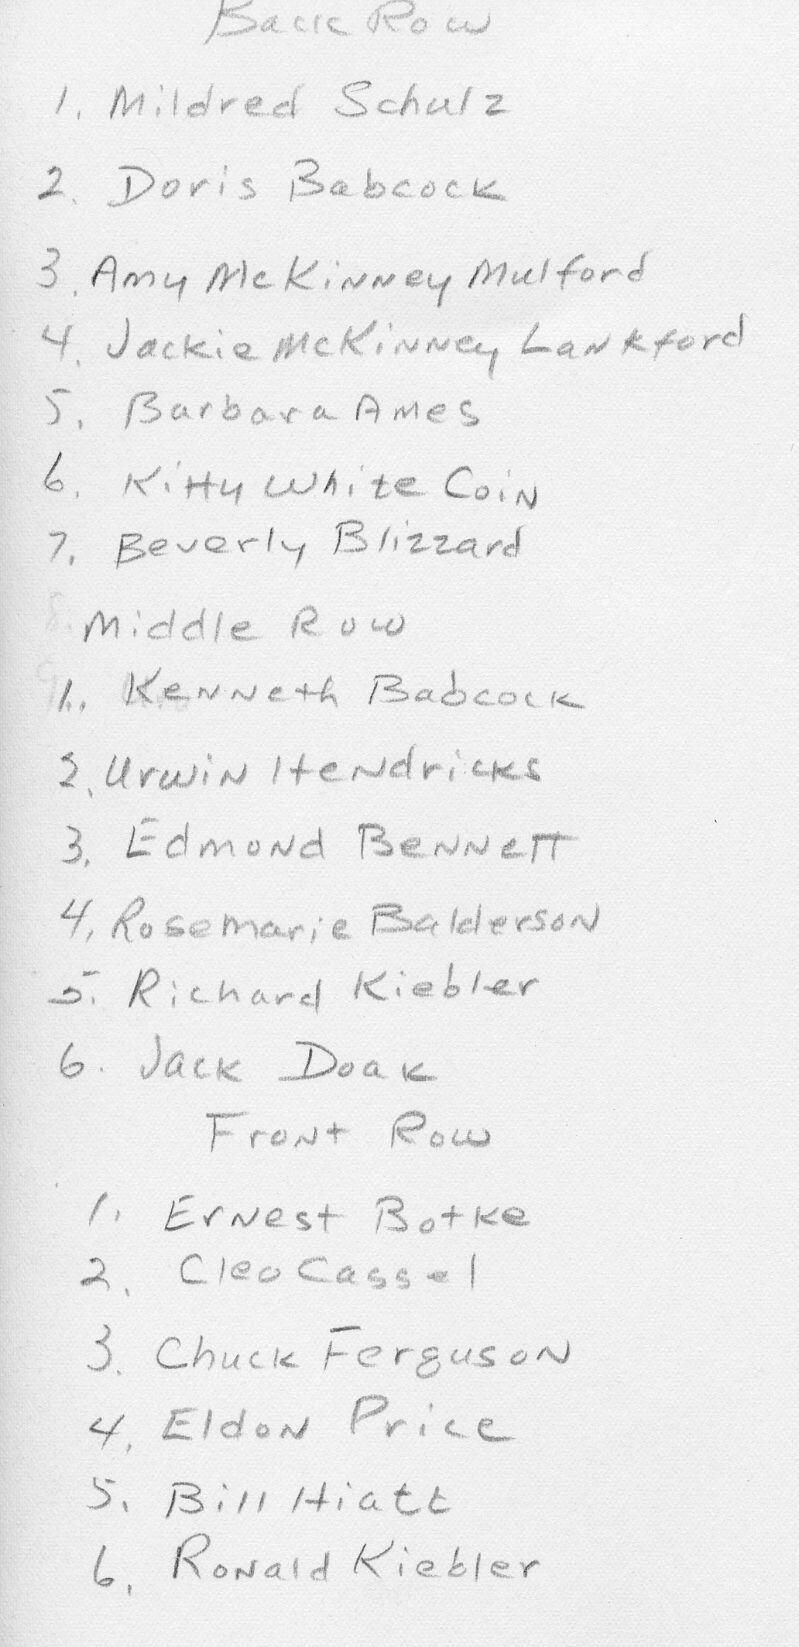 Back Row
1. Mildred Schulz
2. Doris Babcock
3. Amy McKinney Mulford
4. Jackie McKinney Lankford
5. Barbara Ames
6. Kitty White Coin
7. Beverly Blizzard
8. Middle Row
1. Kenneth Babcock
2. Urwin Hendricks
3. Edmond Bennett
4. Rosemarie Balderson
5. Richard Kiebler
6. Jack Doak
Front Row
1. Ernest Botke
2. Cleo Cassel
3. Chuck Ferguson
4. Eldon Price
5. Bill Hiatt
6. Ronald Kiebler